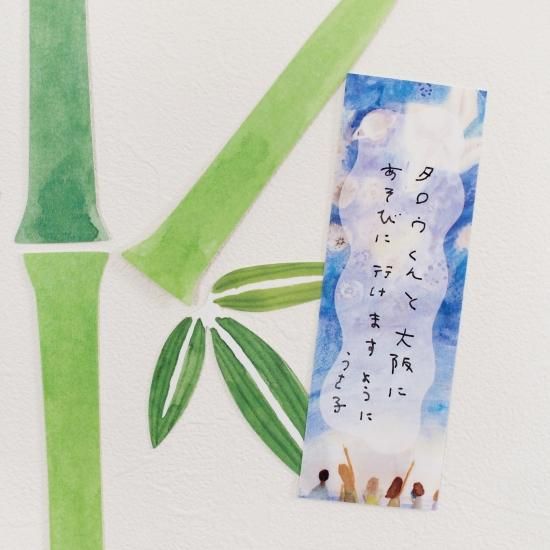 タロウくんと大阪に
あそびに行けますように
うさ子